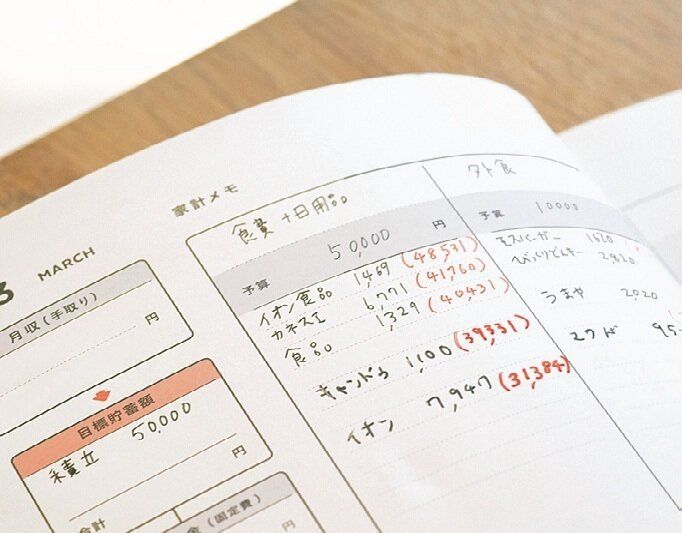 3 MARCH
月収(手取り)
円
目標貯蓄額
積立 50,000
円
合計
金(固定費)
円
家計メモ
食費+日用品
予算 50,000 円
イオン食品 1,469 (48,531)
カネスエ 6,771 (41,760)
食品 1,329 (40,431)
キャンドゥ 1,100 (39,331)
イオン 7,947 (31,384)
外食
予算 10000
モスバーガー 1620
びっくりドンキー 2920
うまや 2,020
マクド 95